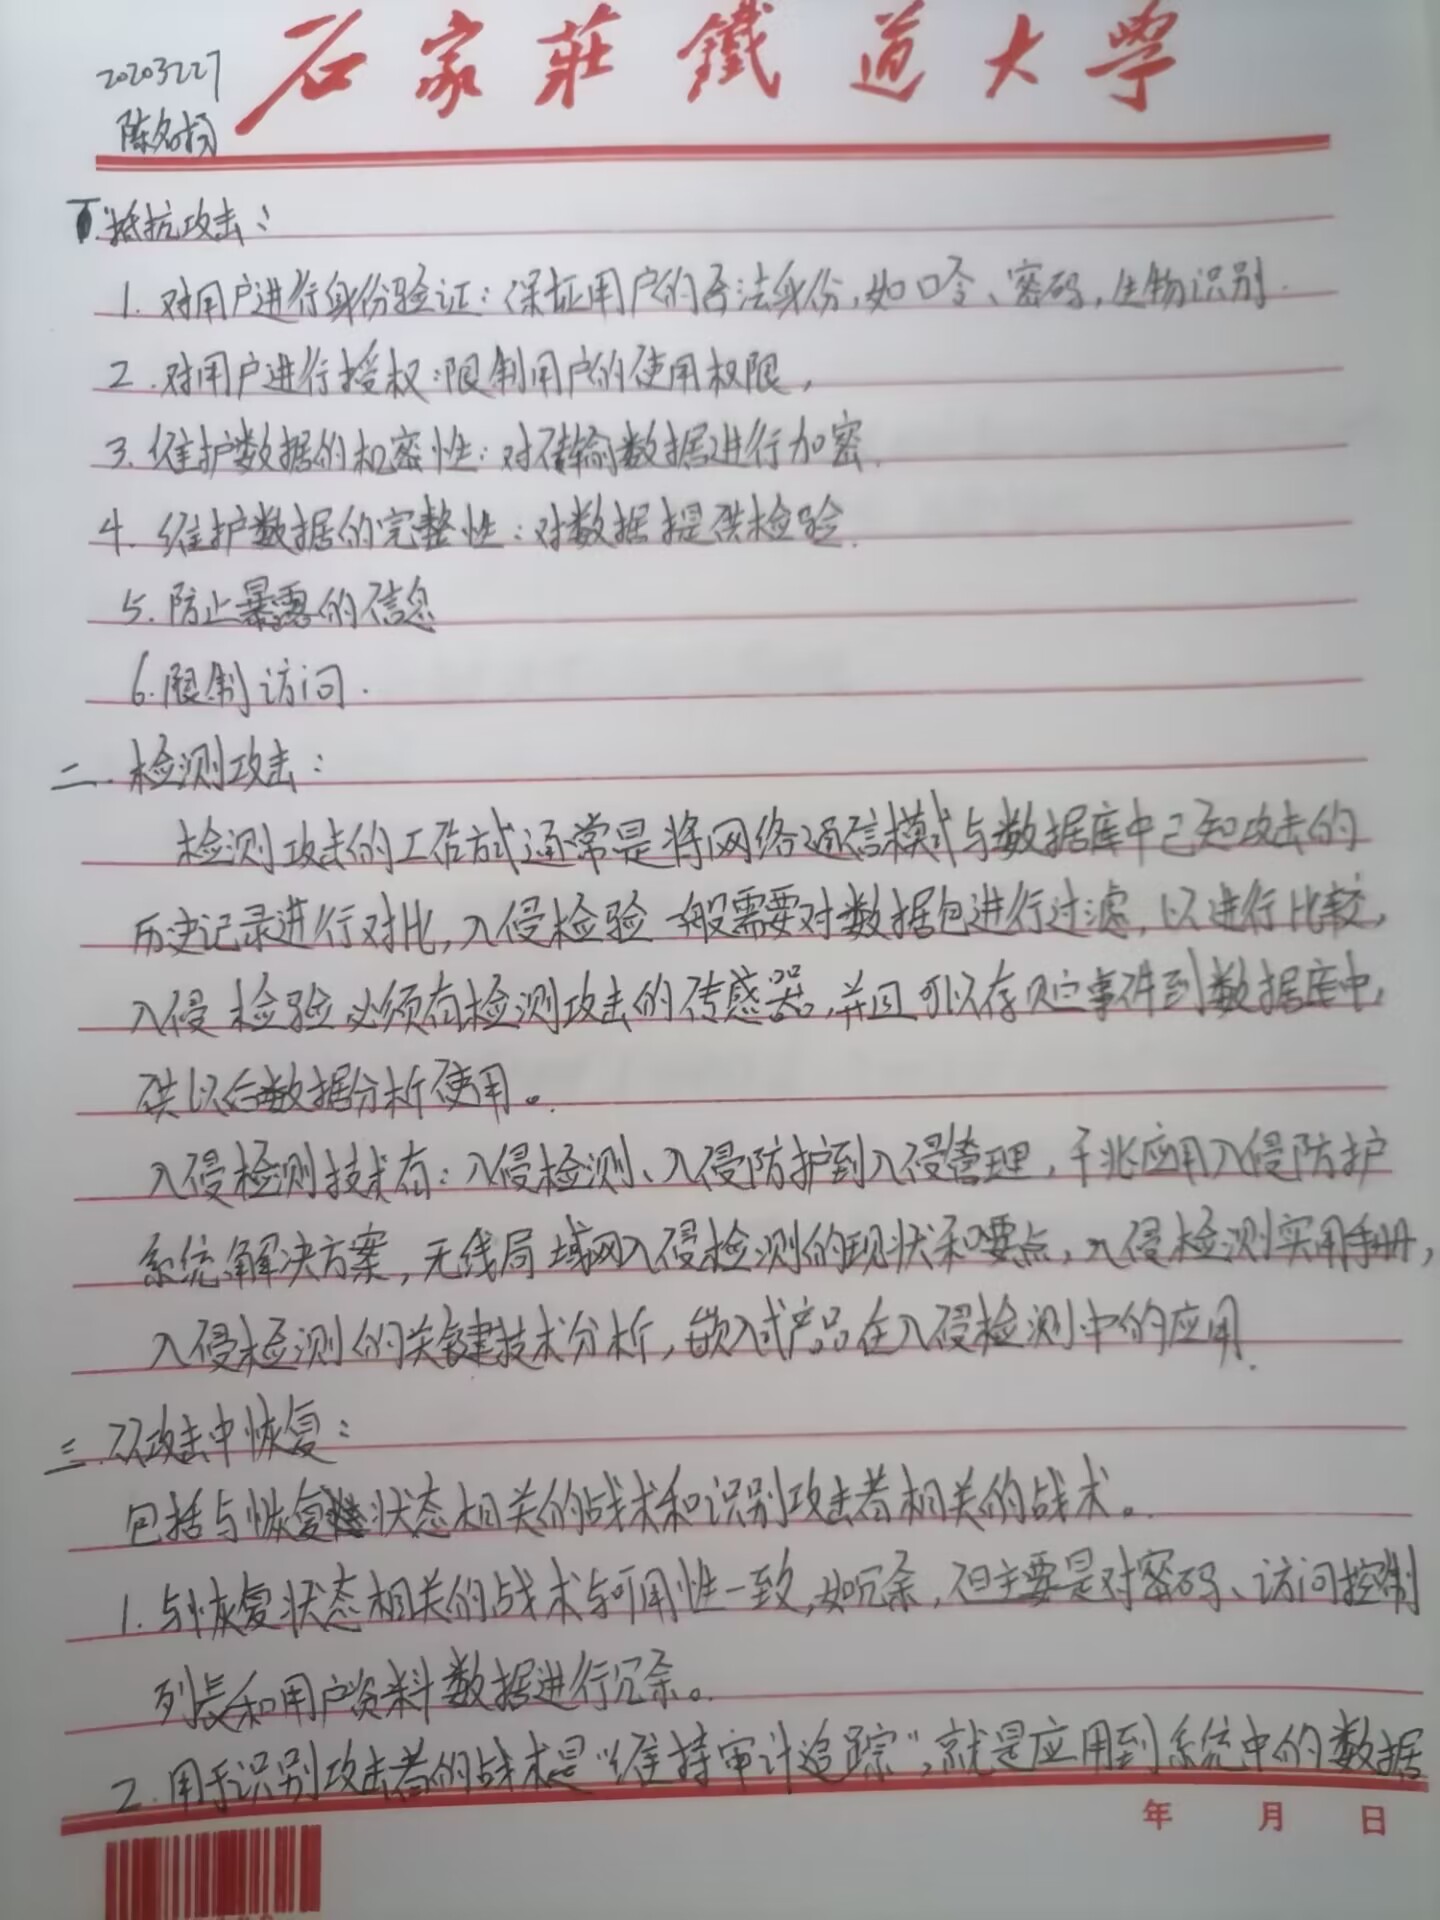 石家莊鐵道大學
20203227
陈名扬
抵抗攻击:
1. 对用户进行身份验证:保证用户的合法身份,如口令、密码,生物识别.
2. 对用户进行授权:限制用户的使用权限,
3. 维护数据的机密性:对传输数据进行加密.
4. 维护数据的完整性:对数据提供检验.
5. 防止暴露的信息
6. 限制访问.
二. 检测攻击:
检测攻击的工作方式通常是将网络通信模式与数据库中已知攻击的
历史记录进行对比,入侵检验一般需要对数据包进行过滤,以进行比较,
入侵检验必须有检测攻击的传感器,并且可以存贮事件到数据库中,
供以后数据分析使用。
入侵检测技术有:入侵检测、入侵防护到入侵管理,千兆应用入侵防护
系统解决方案,无线局域网入侵检测的现状和要点,入侵检测实用手册,
入侵检测的关键技术分析,嵌入式产品在入侵检测中的应用.
三. 从攻击中恢复:
包括与恢复状态相关的战术和识别攻击者相关的战术。
1. 与恢复状态相关的战术与可用性一致,如冗余,但主要是对密码、访问控制
列表和用户资料数据进行冗余。
2. 用于识别攻击者的战术是“维持审计追踪”,就是应用到系统中的数据
年 月 日